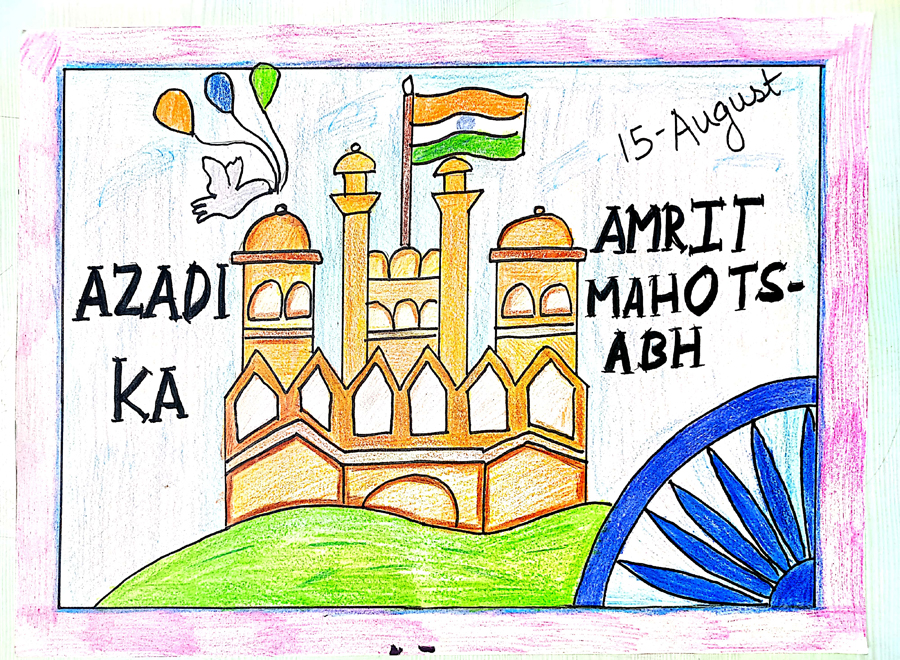 15-August
AZADI
KA
AMRIT
MAHOTS-
ABH